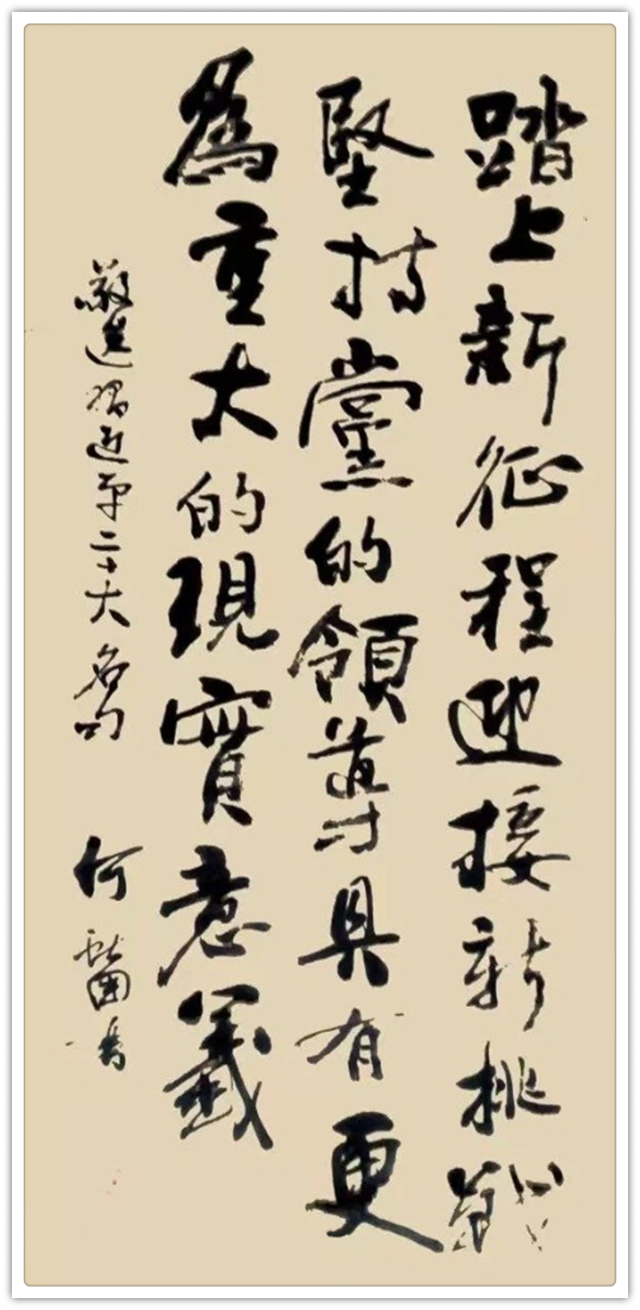 踏上新征程迎接新挑戰
堅持黨的領導具有更
為重大的現實意義
嚴選習近平二十大名句
何 國書